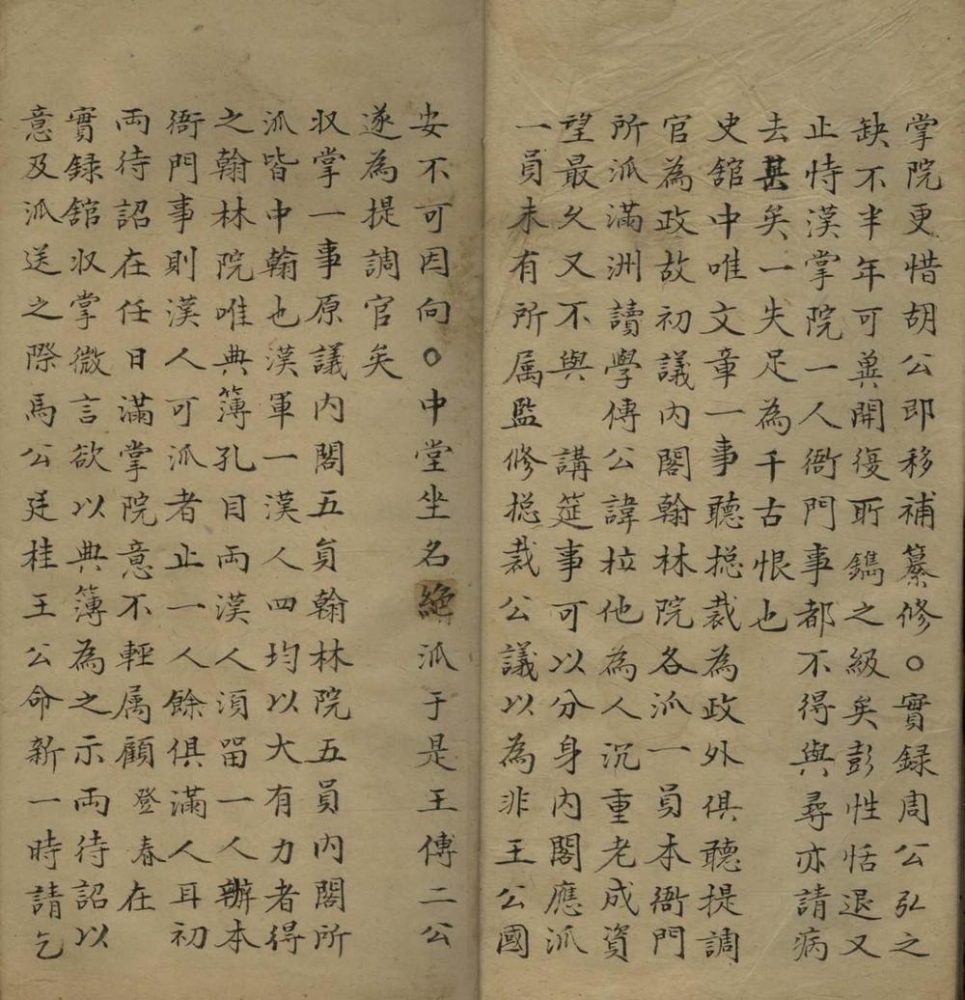 掌院更惜胡公即移補纂修○實録周公弘之
缺不半年可冀開復所鐫之級矣彭性恬退又
止恃漢掌院一人衙門事都不得與尋亦請病
去甚矣一失足為千古恨也
史舘中唯文章一事聽揔裁為政外俱聽提調
官為政故初議内閣翰林院各派一員本衙門
所派滿洲讀學傅公諱拉他為人沉重老成資
望最久又不與 講筵事可以分身内閣應派
一員未有所属監修揔裁公議以為非王公國
安不可因向○中堂坐名絶派于是王傅二公
遂為提調官矣
収掌一事原議内閣五員翰林院五員内閣所
派皆中翰也漢軍一漢人四均以大有力者得
之翰林院唯典簿孔目両漢人湏畱一人辦本
衙門事則漢人可派者止一人餘俱滿人耳初
両待詔在任日滿掌院意不輕属顧登春在
實録舘収掌微言欲以典簿為之示両待詔以
意及派送之際馬公廷桂王公命新一時請乞